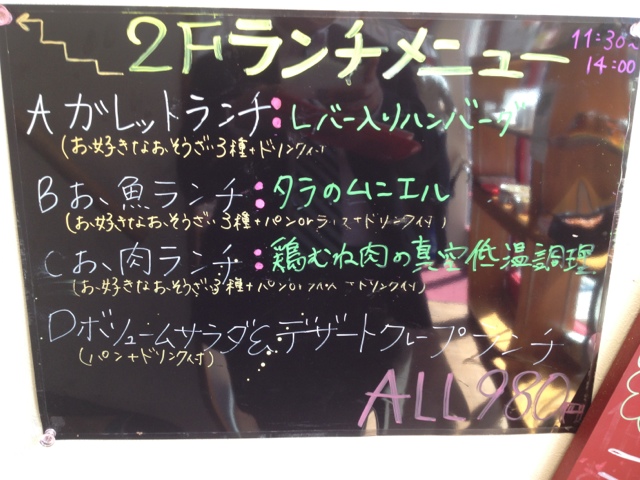 2Fランチメニュー
11:30~
14:00
A ガレットランチ:レバー入りハンバーグ
(お好きなおそうざい3種+ドリンク付
B お魚ランチ:タラのムニエル
(お好きなおそうざい3種+パンorライス+ドリンク付)
C お肉ランチ:鶏むね肉の真空低温調理
(お好きなおそうざい3種+パンorライス+ドリンク付)
D ボリュームサラダ&デザートクレープランチ
(パン+ドリンク付)
ALL 980円